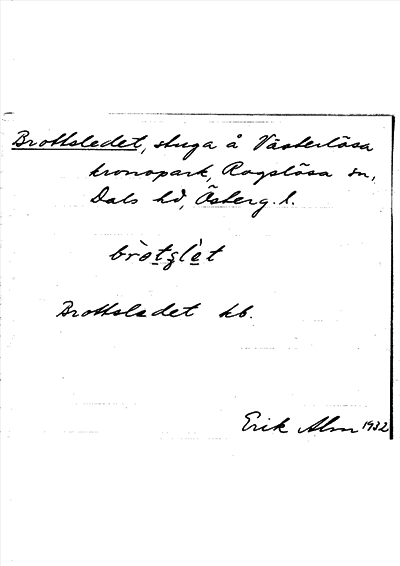 Brottsledet, stuga å Västerlösa
kronopark, Rogslösa sn,
Dals hd, Österg. l.
bròtslèt
Brottsledet kb.
Erik Alm 1932